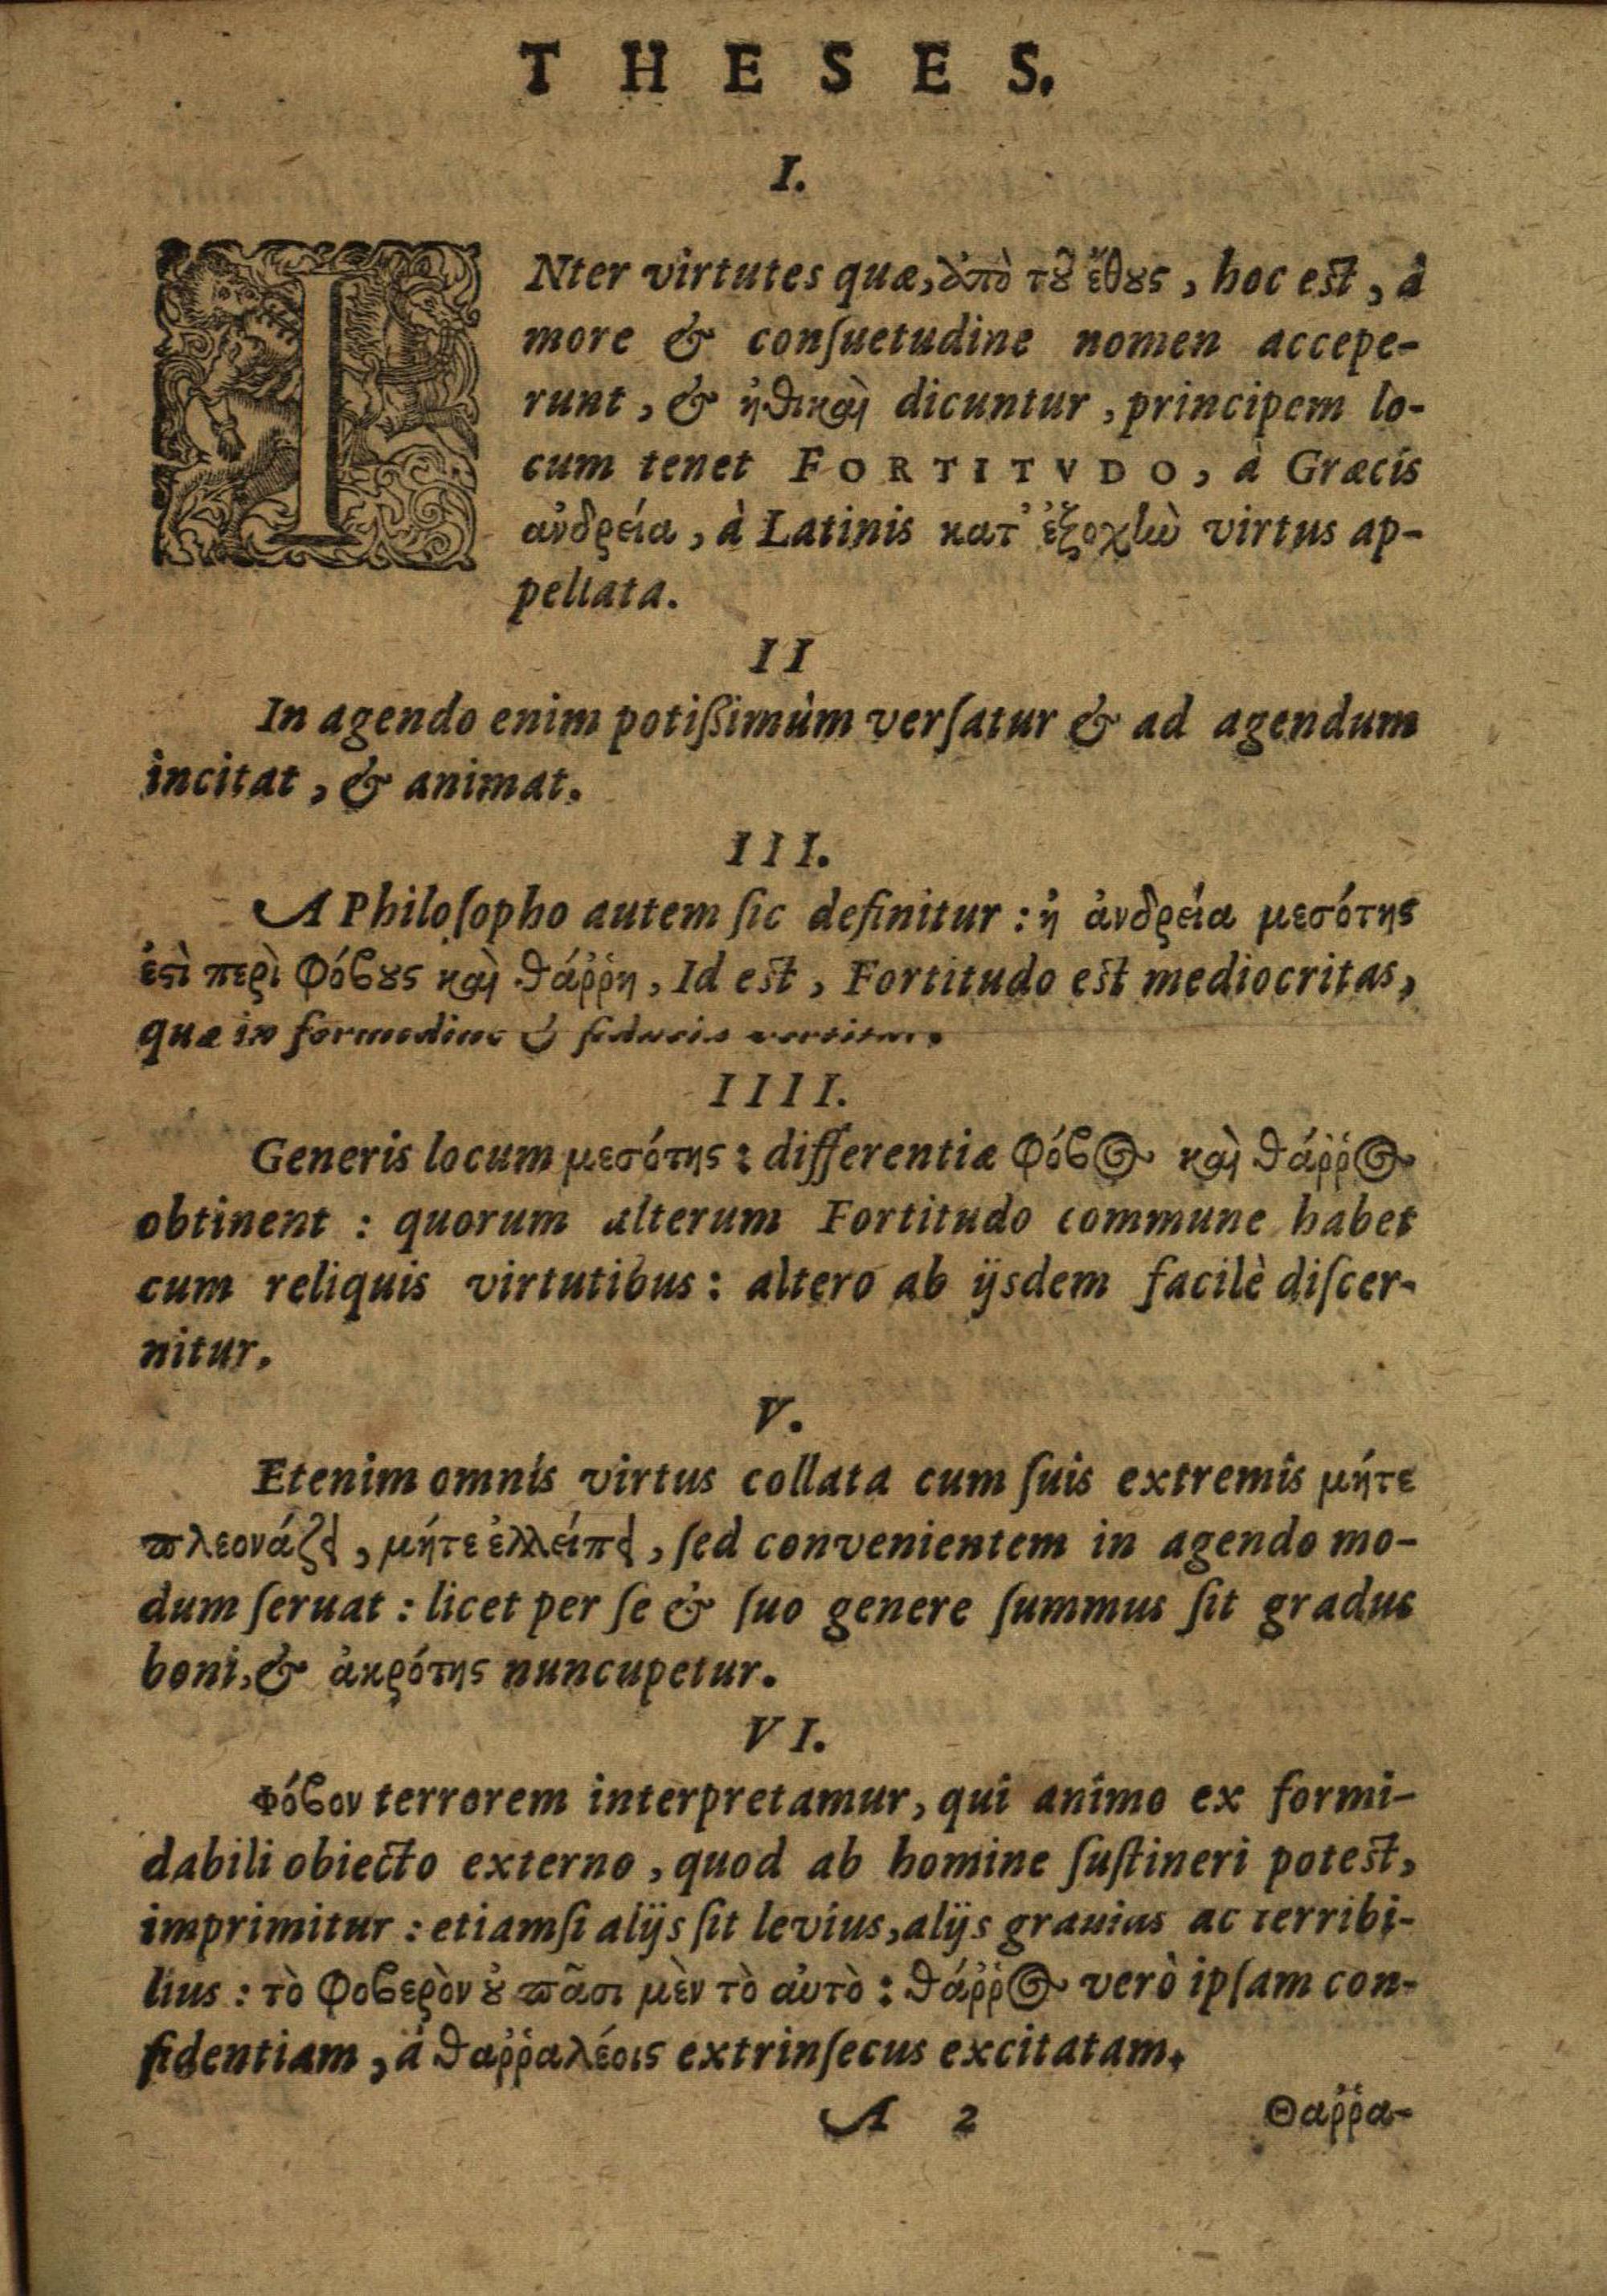 THESES.
I.
INter virtutes quæ, ἀπὸ τοῦ ἔθους, hoc est, à
more & conſuetudine nomen accepe-
runt, & ἠθικαὶ dicuntur, principem lo-
cum tenet FORTITVDO, à Græcis
ἀνδρεία, à Latinis κατ' ἐξοχὴν virtus ap-
pellata.
II
In agendo enim potißimùm verſatur & ad agendum
incitat, & animat.
III.
A Philoſopho autem ſic definitur: ἡ ἀνδρεία μεσότης
ἐστὶ περὶ φόβους καὶ θάῤῥη, Id est, Fortitudo est mediocritas,
quæ in formidine & fiducia vertitur.
IIII.
Generis locum μεσότης: differentiæ φόβος καὶ θάῤῥος
obtinent: quorum alterum Fortitudo commune habet
cum reliquis virtutibus: altero ab ijsdem facilè diſcer-
nitur.
V.
Etenim omnis virtus collata cum ſuis extremis μήτε
πλεονάζει, μήτε ἐλλείπει, ſed convenientem in agendo mo-
dum ſeruat: licet per ſe & ſuo genere ſummus ſit gradus
boni, & ἀκρότης nuncupetur.
VI.
Φόβον terrorem interpretamur, qui animo ex formi-
dabili obiecto externo, quod ab homine ſuſtineri potest,
imprimitur: etiamſi alijs ſit levius, alijs grauius ac terribi-
lius: τὸ φοβερὸν οὐ πᾶσι μὲν τὸ αὐτὸ: θάῤῥος verò ipſam con-
fidentiam, à θαῤῥαλέοις extrinſecus excitatam.
A 2 Θαῤῥα-